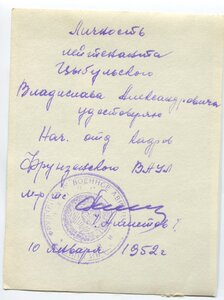 Личность
лейтенанта
Цыбульского
Владислава Александровича
удостоверяю
Нач. отд кадров
Фрунзенского ВАУЛ
м-р
10 января 1952 г